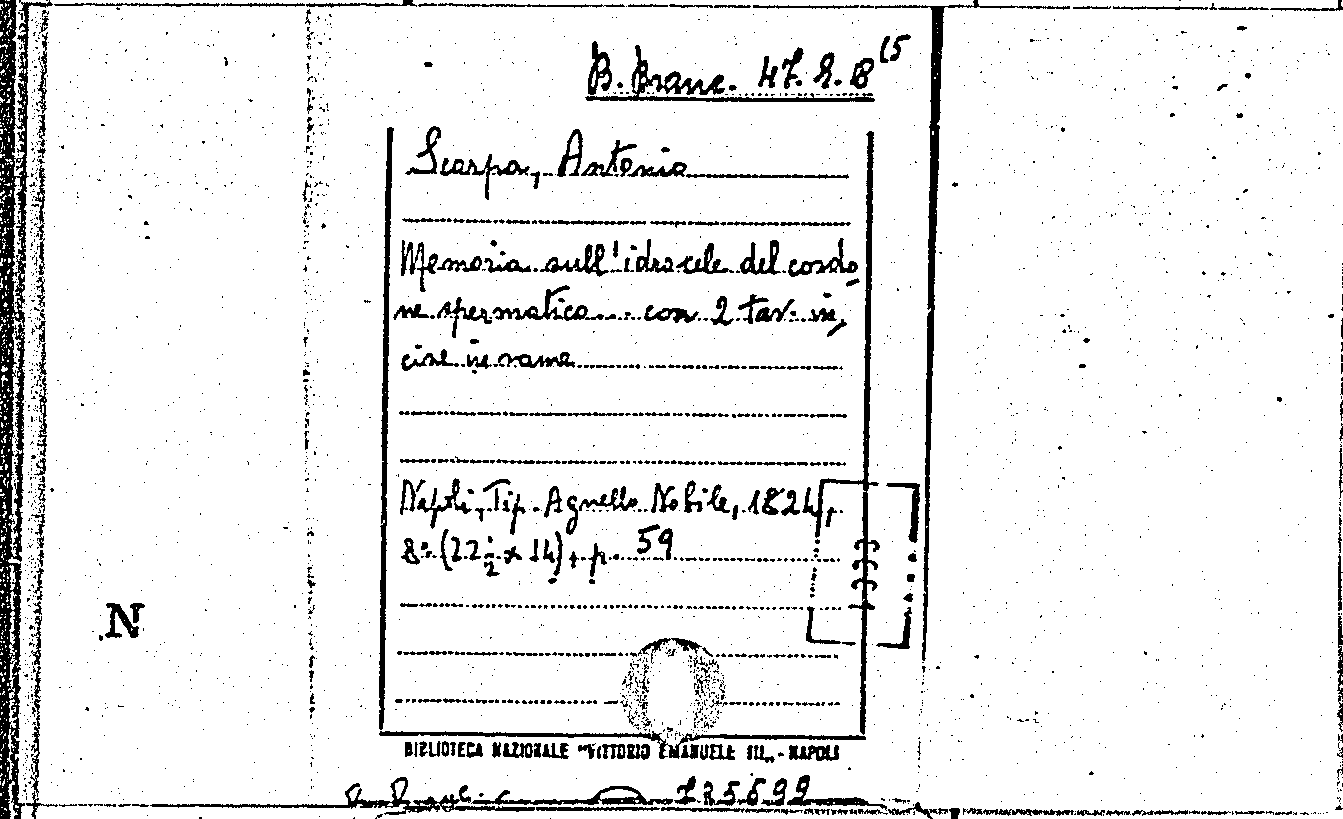 B. Branc. 47. G. 8 (5
Scarpa, Antonio
Memoria sull'idrocele del cordo
ne spermatico... con 2 tav. in,
cise in rame
Napoli, Tip. Agnello Nobile, 1824,
8° (22 1/2 x 14), p. 59
N
BIBLIOTECA NAZIONALE "VITTORIO EMANUELE III„ - NAPOLI